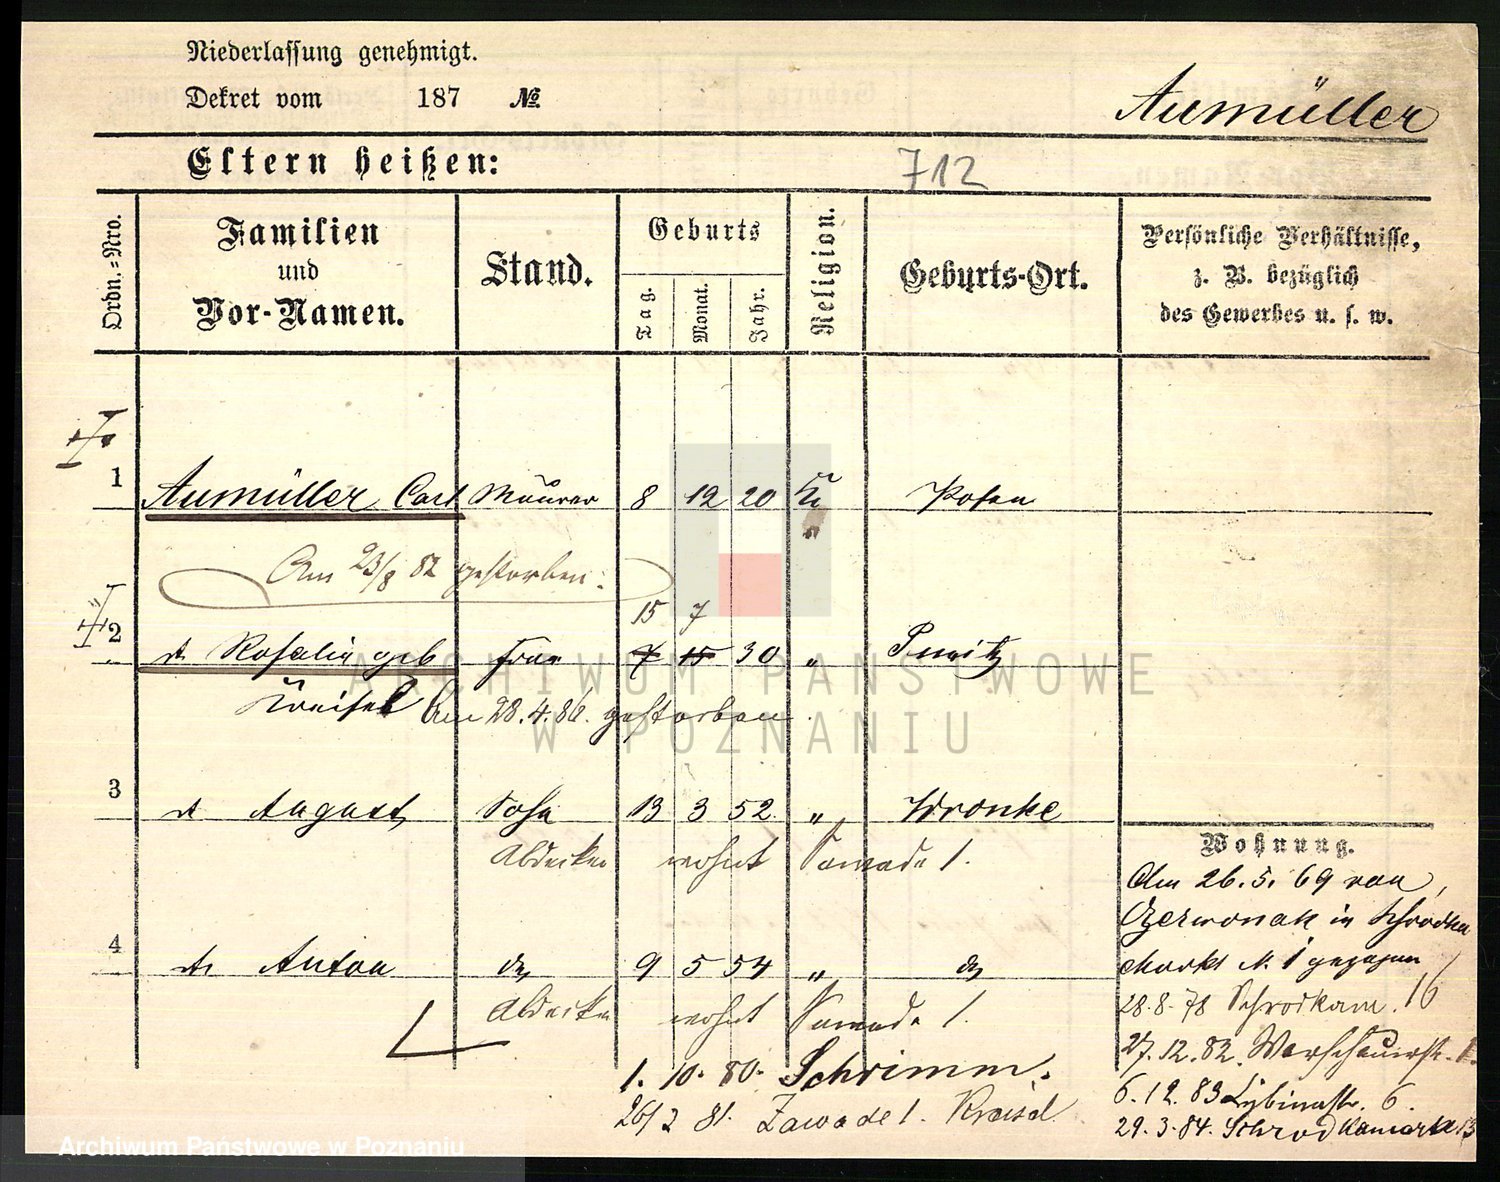 Niederlassung genehmigt.
Dekret vom 187 №
Aumüller
Eltern heißen:
712
Ordn.-Nro.
Familien
und
Vor-Namen.
Stand.
Geburts
Tag.
Monat.
Jahr.
Religion.
Geburts-Ort.
Persönliche Verhältnisse,
z. B. bezüglich
des Gewerbes u. s. w.
1 Aumüller Carl Maurer 8 12 20 Posen
Am 23/8 82 gestorben.
15 7
2 Rosalie geb Frau 7 15 30 "
Kreisel Am 28.4.86. gestorben.
3 August Sohn 13 3 52 " Wronke
Abdecker wohnt Zawade 1.
4 Anton do 9 5 54 " do
Abdecker wohnt Zawade 1.
1. 10. 80. Schrimm.
26/2 81. Zawade 1. Kreisel
Wohnung.
Am 26.5.69 von
Czerwonak in Schrodka
Markt N. 1 gezogen
28.8.78 Schrodkam. 16
27.12.82. Warschauerstr.
6.12.83 Lybinastr. 6.
29.3.84. Schrodkamarkt 13
ARCHIWUM PAŃSTWOWE
W POZNANIU
Archiwum Państwowe w Poznaniu